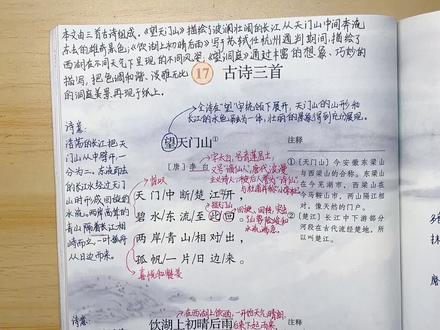 本文由三首古诗组成,《望天门山》描绘了波澜壮阔的长江从天门山中间奔流
东去的雄奇景色,《饮湖上初晴后雨》写了苏轼任杭州通判期间,描绘了
西湖在不同天气下呈现的不同风姿,《望洞庭》通过丰富的想象、巧妙的
描写,把色调和谐、淡雅无比
的洞庭美景再现于纸上。
17 古诗三首
全诗在"望"字统领下展开,天门山的山形和
长江的水色融为一体,壮丽的景象得到充分展现。
诗意:
浩荡的长江把天
门山从中劈开,一
分为二。东流而去
的长江水经过天门
山时形成回旋的水
流。两岸高耸的
青山隔着长江相
峙而立。一叶孤舟
从日边而来。
望天门山①
[唐] 李白
字太白,号青莲居士,
又号"谪仙人",唐代浪漫
主义诗人,被后人誉为"诗仙"
天门中断楚江开,
碧水东流至此回。
两岸青山相对出,
孤帆一片日边来。
注释
①〔天门山〕今安徽东梁山
与西梁山的合称。东梁山
在今芜湖市,西梁山在
今马鞍山市,两山隔江相
对,像天然的门户。
②〔楚江〕长江中下游部分
河段在古代流经楚地,所
以叫楚江。
诗意:
饮湖上初晴后雨
注释